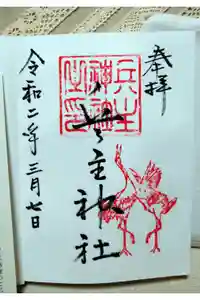 奉拝
兵主神社
令和二年三月七日
兵主
神社
之印